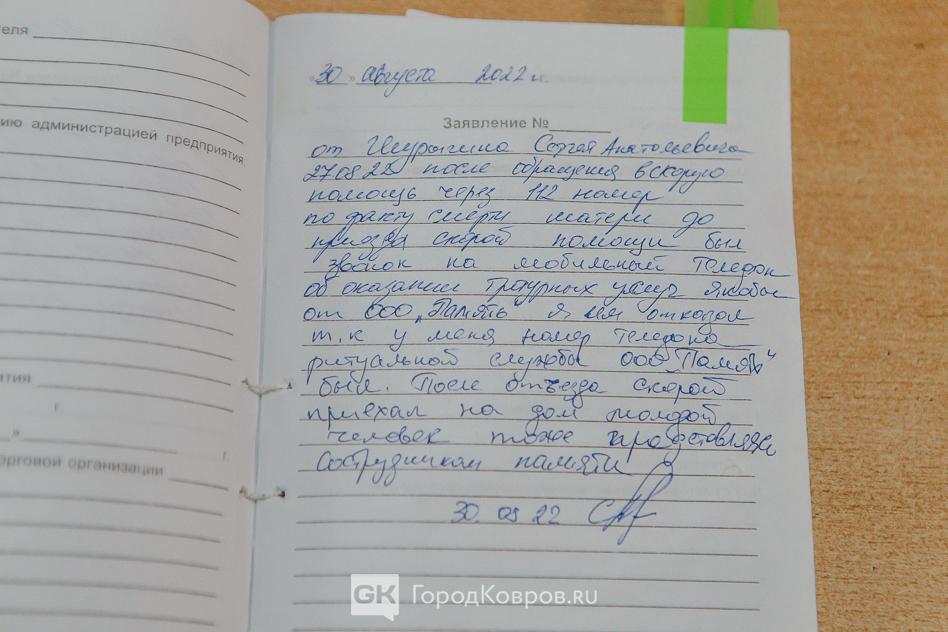 теля
ию администрацией предприятия
ятия
г
» г.
орговой организации
«30» августа 2022 г.
Заявление №
от Сергея Анатольевича
27 08 22 после обращения в скорую
помощь через 112 номер
по факту смерти матери до
приезда скорой помощи был
звонок на мобильный телефон
об оказании услуг якобы
от ООО „Память" Я им отказал
т.к у меня номер телефона
ритуальной службы ООО „Память"
был. После отъезда скорой
приехал на дом молодой
человек тоже
сотрудником памяти
30. 08 22
GK ГородКовров.ru